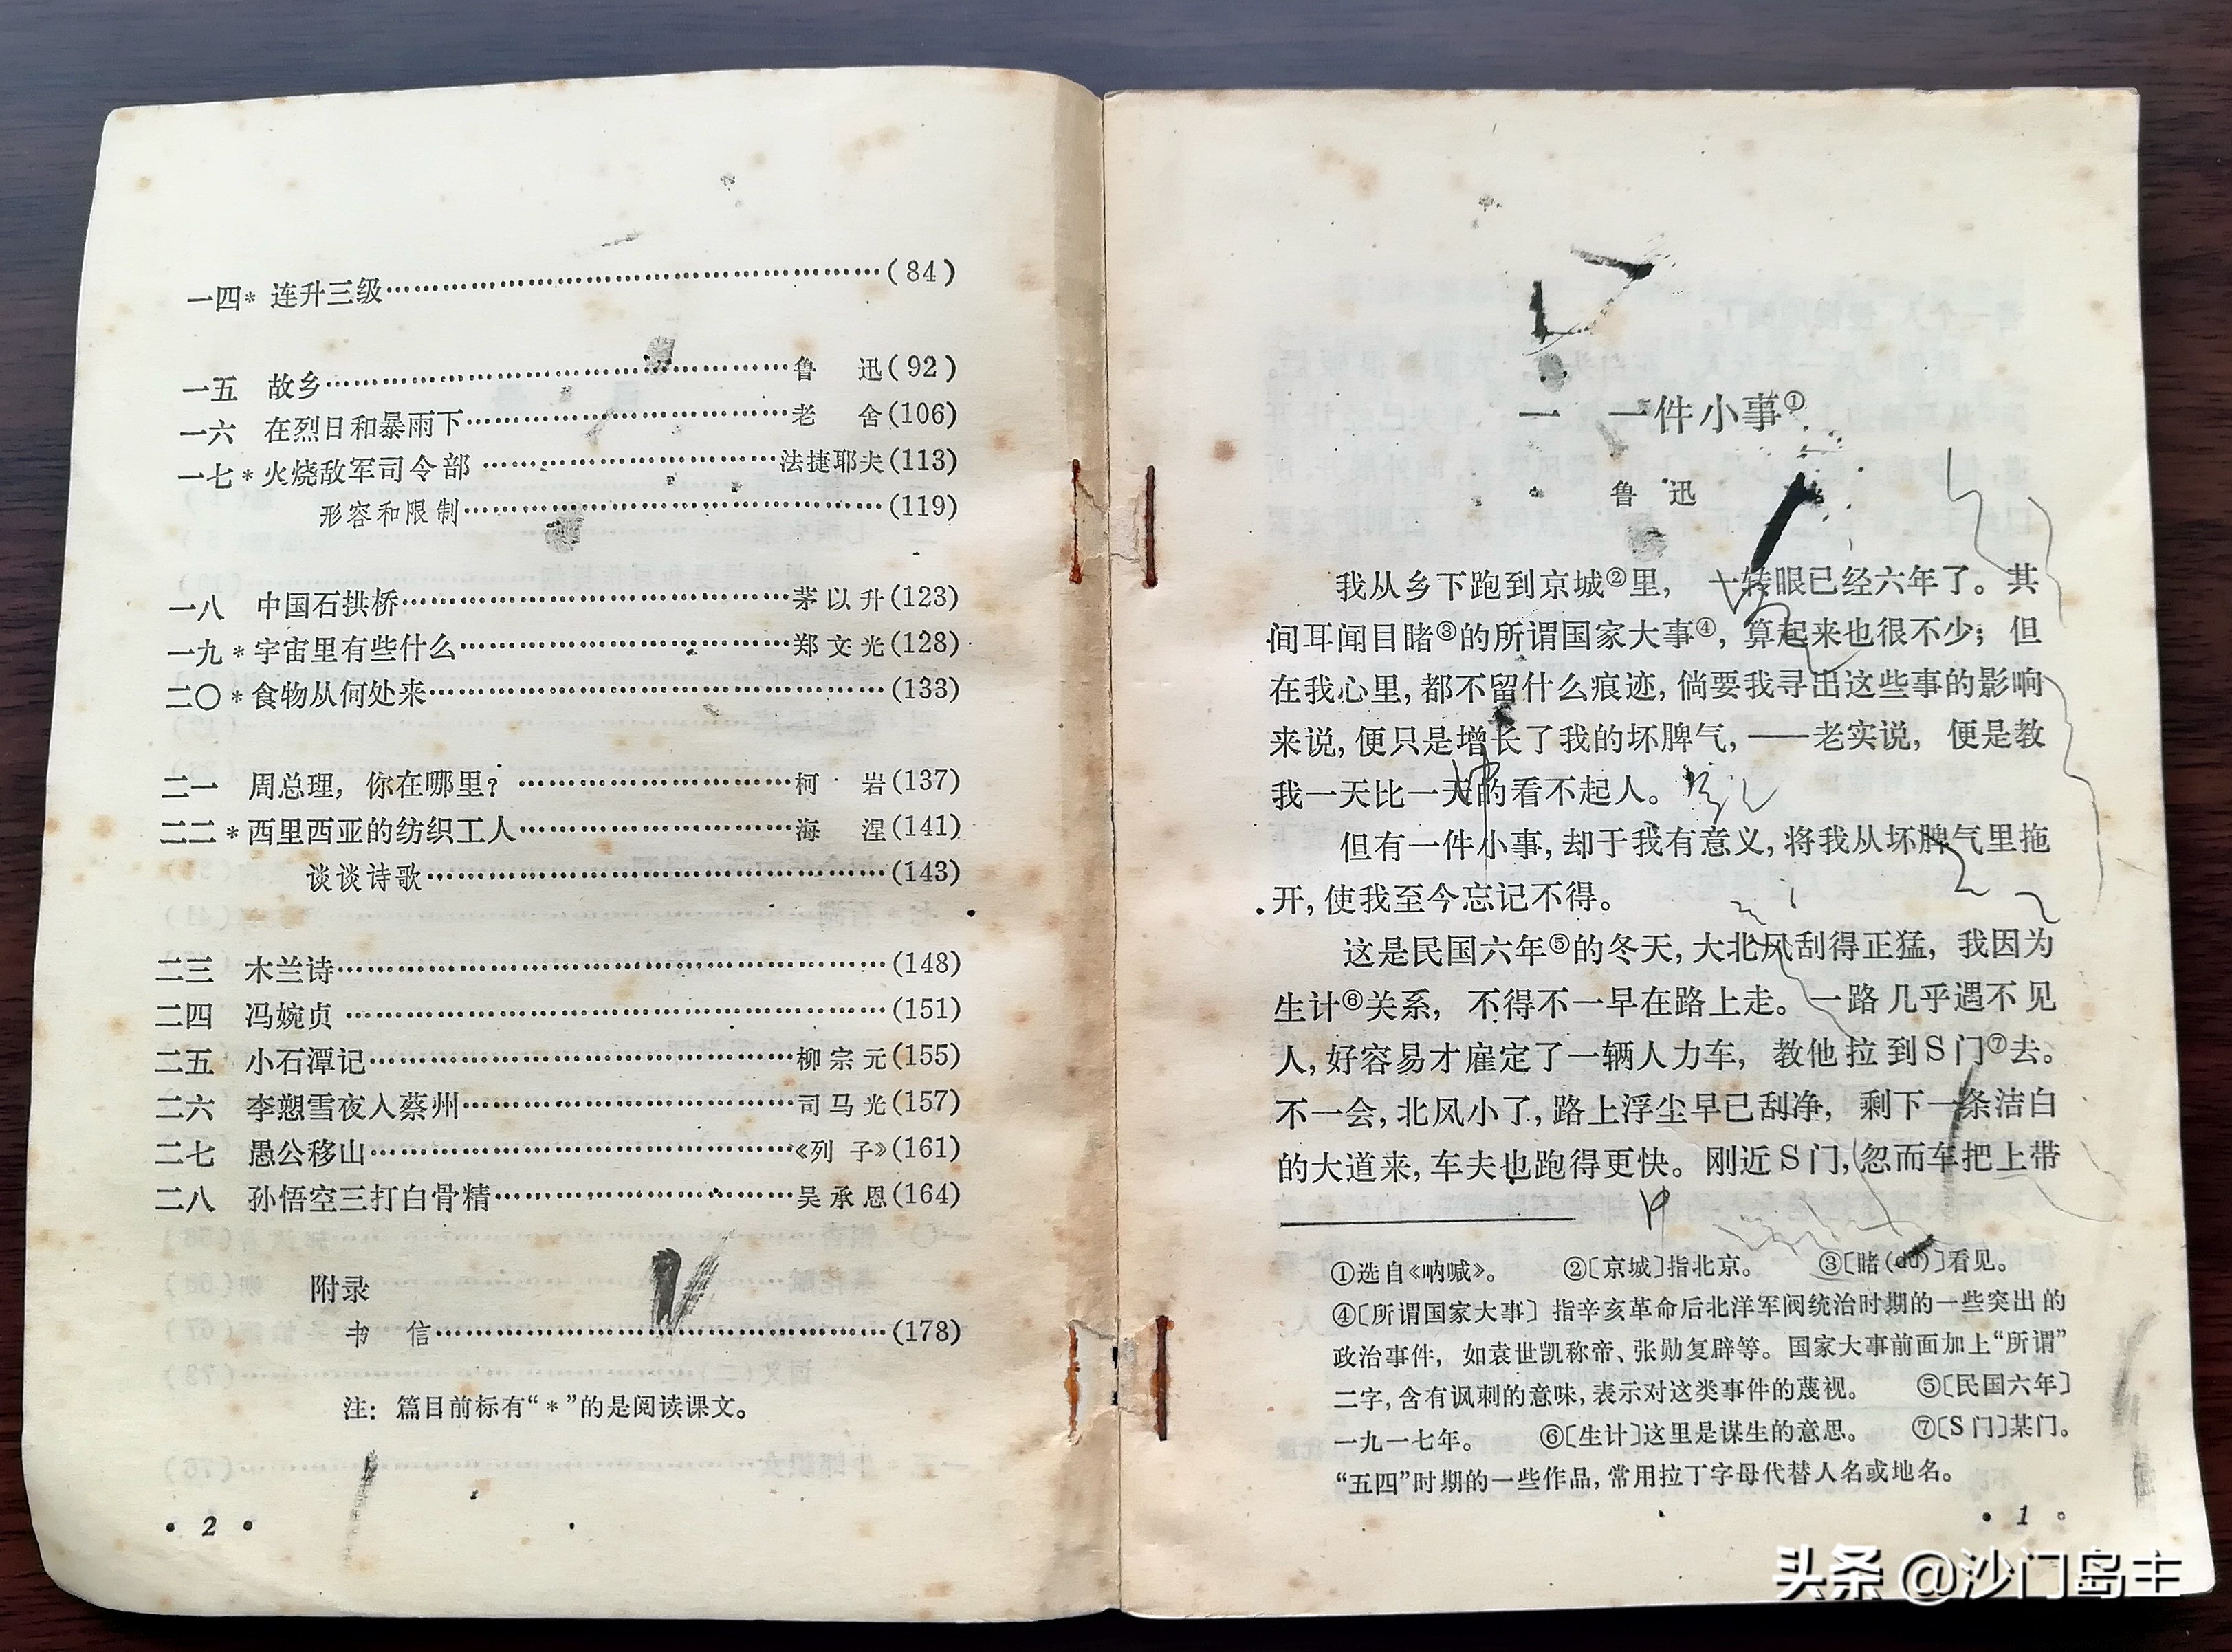 一四* 连升三级……………………………………(84)
一五 故乡……………………………………鲁 迅(92)
一六 在烈日和暴雨下……………………………老 舍(106)
一七*火烧敌军司令部……………………………法捷耶夫(113)
形容和限制……………………………………(119)
一八 中国石拱桥……………………………………茅以升(123)
一九*宇宙里有些什么……………………………郑文光(128)
二〇*食物从何处来……………………………………(133)
二一 周总理，你在哪里？……………………………柯 岩(137)
二二*西里西亚的纺织工人……………………………海 涅(141)
谈谈诗歌……………………………………(143)
二三 木兰诗……………………………………(148)
二四 冯婉贞……………………………………(151)
二五 小石潭记……………………………………柳宗元(155)
二六 李愬雪夜入蔡州……………………………司马光(157)
二七 愚公移山……………………………………《列 子》(161)
二八 孙悟空三打白骨精……………………………吴承恩(164)
附录
书 信……………………………………(178)
注：篇目前标有“*”的是阅读课文。
• 2 •
一 一件小事①
鲁 迅
我从乡下跑到京城②里，一转眼已经六年了。其
间耳闻目睹③的所谓国家大事④，算起来也很不少；但
在我心里，都不留什么痕迹，倘要我寻出这些事的影响
来说，便只是增长了我的坏脾气，——老实说，便是教
我一天比一天的看不起人。
但有一件小事，却于我有意义，将我从坏脾气里拖
开，使我至今忘记不得。
这是民国六年⑤的冬天，大北风刮得正猛，我因为
生计⑥关系，不得不一早在路上走。一路几乎遇不见
人，好容易才雇定了一辆人力车，教他拉到S门⑦去。
不一会，北风小了，路上浮尘早已刮净，剩下一条洁白
的大道来，车夫也跑得更快。刚近S门，忽而车把上带
①选自《呐喊》。 ②〔京城〕指北京。 ③〔睹(dǔ)〕看见。
④〔所谓国家大事〕指辛亥革命后北洋军阀统治时期的一些突出的
政治事件，如袁世凯称帝、张勋复辟等。国家大事前面加上“所谓”
二字，含有讽刺的意味，表示对这类事件的蔑视。 ⑤〔民国六年〕
一九一七年。 ⑥〔生计〕这里是谋生的意思。 ⑦〔S门〕某门。
“五四”时期的一些作品，常用拉丁字母代替人名或地名。
• 1 •
头条 @沙门岛主